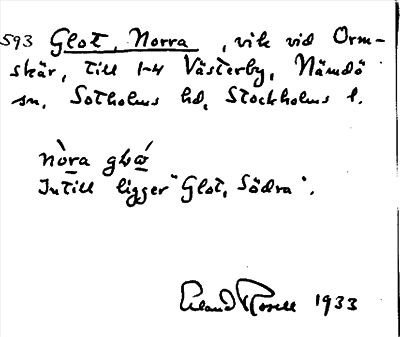 593 Glot, Norra, vik vid Orm-
skär, till 1-4 Västerby, Nämdö
sn, Sotholms hd, Stockholms l.
nòra
Intill ligger "Glot, Södra".
Erland Rosell 1933